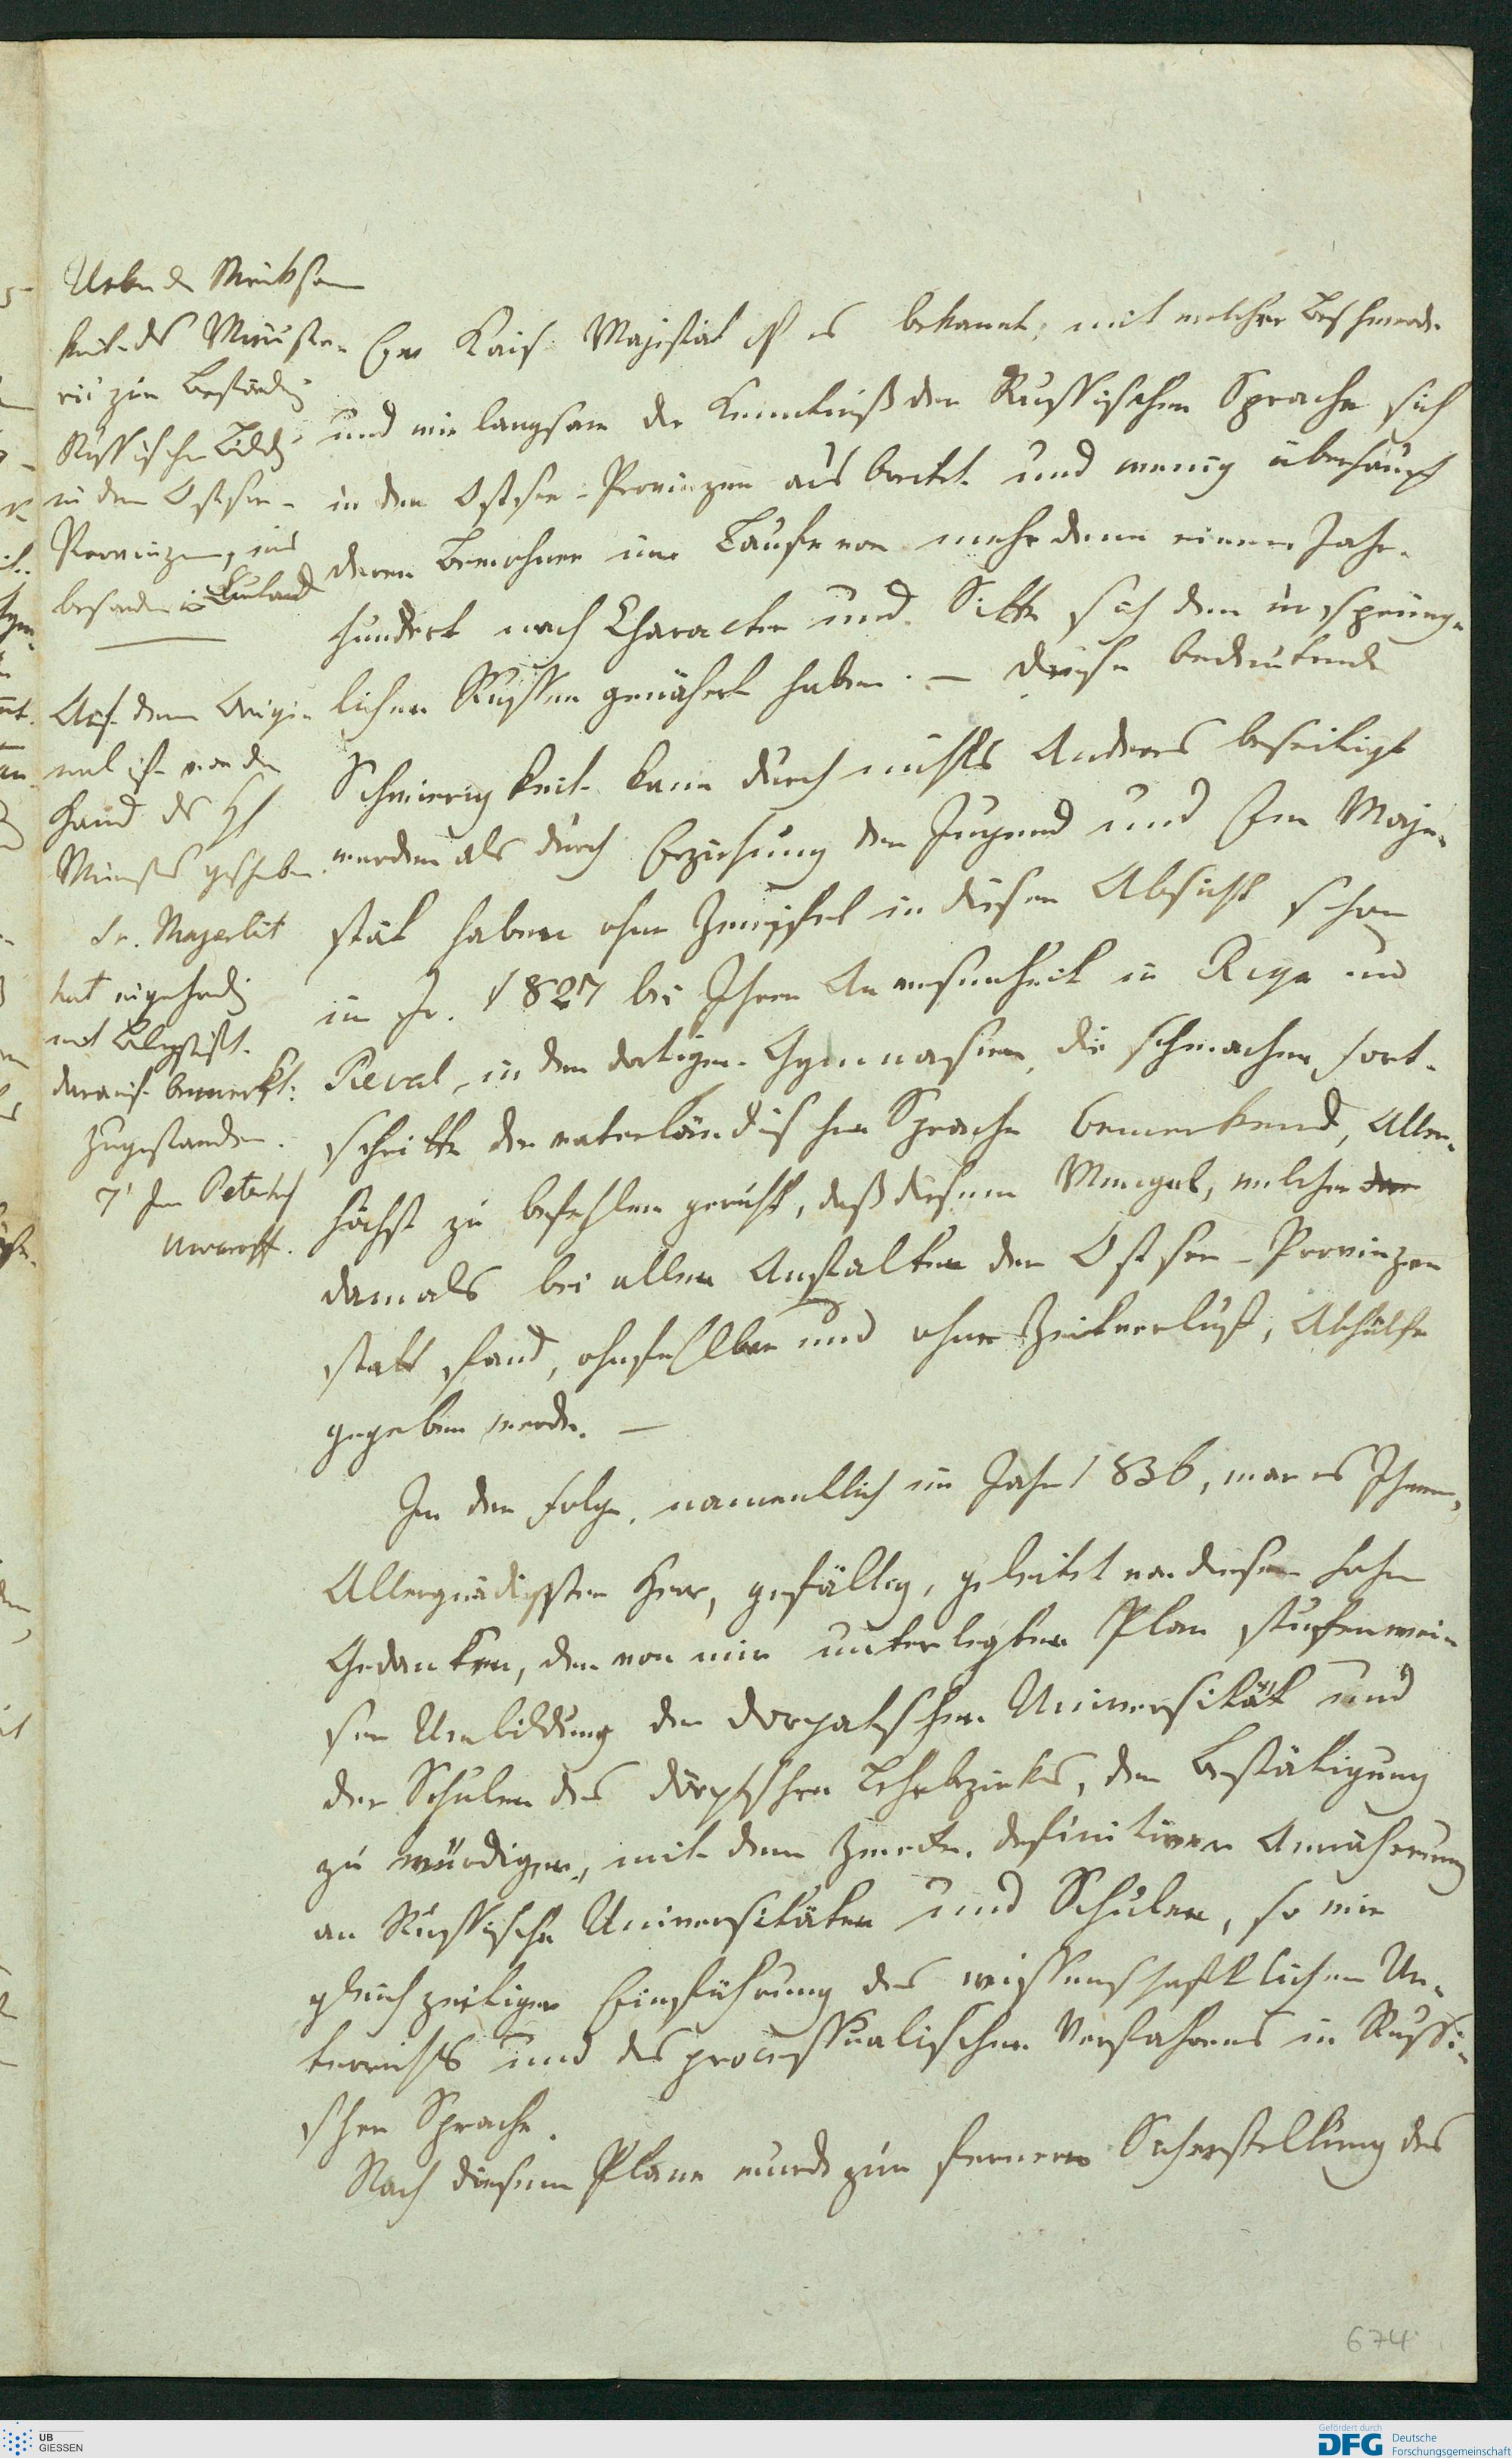 Ueber die Wirksam
keit des Ministe-
rii zur Beförderung
Russischer Bildung
in den Ostsee-
Provinzen, ins
besondere in Kurland

Auf dem Origi-
nal ist von der
Hand des H
Ministers geschrieben
Sr. Majestät
hat eigenhändig
mit Bleystift
darauf bemerkt:
Zugestanden.
7 Jan Peterhof
Uwaroff.

Ew Kais. Majestät ist es bekannt, mit welcher Beschwerde
und wie langsam die Kenntniß der Russischen Sprache sich
in den Ostsee-Provinzen ausbreitet und wenig überhaupt
deren Bewohner im Laufe von mehr denn einem Jahr-
hundert nach Character und Sitte sich den ursprüng-
lichen Russen genähert haben. — Diese bedeutende
Schwierigkeit kann durch nichts Anderes beseitigt
werden als durch Erziehung der Jugend und Ew Maje-
stät haben ohne Zweifel in dieser Absicht schon
im Jr. 1827 bei Ihrer Anwesenheit in Riga und
Reval, in den dortigen Gymnasien, die schwachen Fort-
schritte der vaterländischen Sprache bemerkend, Aller-
höchst zu befehlen geruht, daß diesem Mangel, welcher
damals bei allen Anstalten der Ostsee-Provinzen
statt fand, ohnfehlbar und ohne Zeitverlust, Abhülfe
gegeben werde. —
In der Folge, namentlich im Jahr 1836, war es Ihnen,
Allergnädigster Herr, gefällig, geleitet von diesem hohen
Gedanken, den von mir unterlegten Plan stufenwei-
ser Umbildung der dorpatschen Universität und
der Schulen des dörptschen Lehrbezirks, der Bestätigung
zu würdigen, mit dem Zwecke definitiver Annäherung
an Russische Universitäten und Schulen, so wie
gleichzeitiger Einführung des wissenschaftlichen Un-
terrichts und des processualischen Verfahrens in Russi-
scher Sprache.
Nach diesem Plane wurde zur ferneren Sicherstellung des

674

UB
GIESSEN
Gefördert durch
DFG Deutsche
Forschungsgemeinschaft